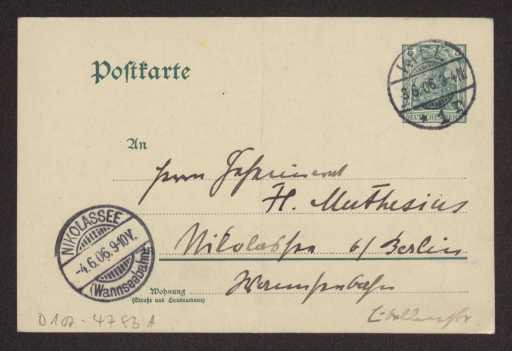 Postkarte
KIEL
3.6.06.
* 1
An
Herrn Geheimrat
H. Muthesius
Nikolassee b/ Berlin
Wannseebahn
NIKOLASSEE
-4.6.06.9-10V.
(Wannseebahn)
Wohnung
(Straße und Hausnummer)
D 102 - 4783 A